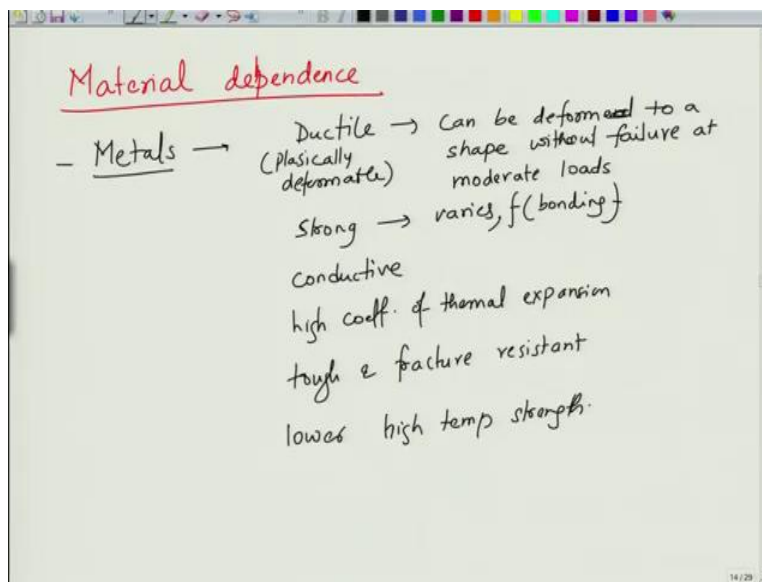 Material dependence
- Metals → Ductile → Can be deformed to a
(Plasically shape without failure at
deformable) moderate loads
Strong → varies, f(bonding)
conductive
high coeff. of thermal expansion
tough & fracture resistant
lower high temp strength.
14/29